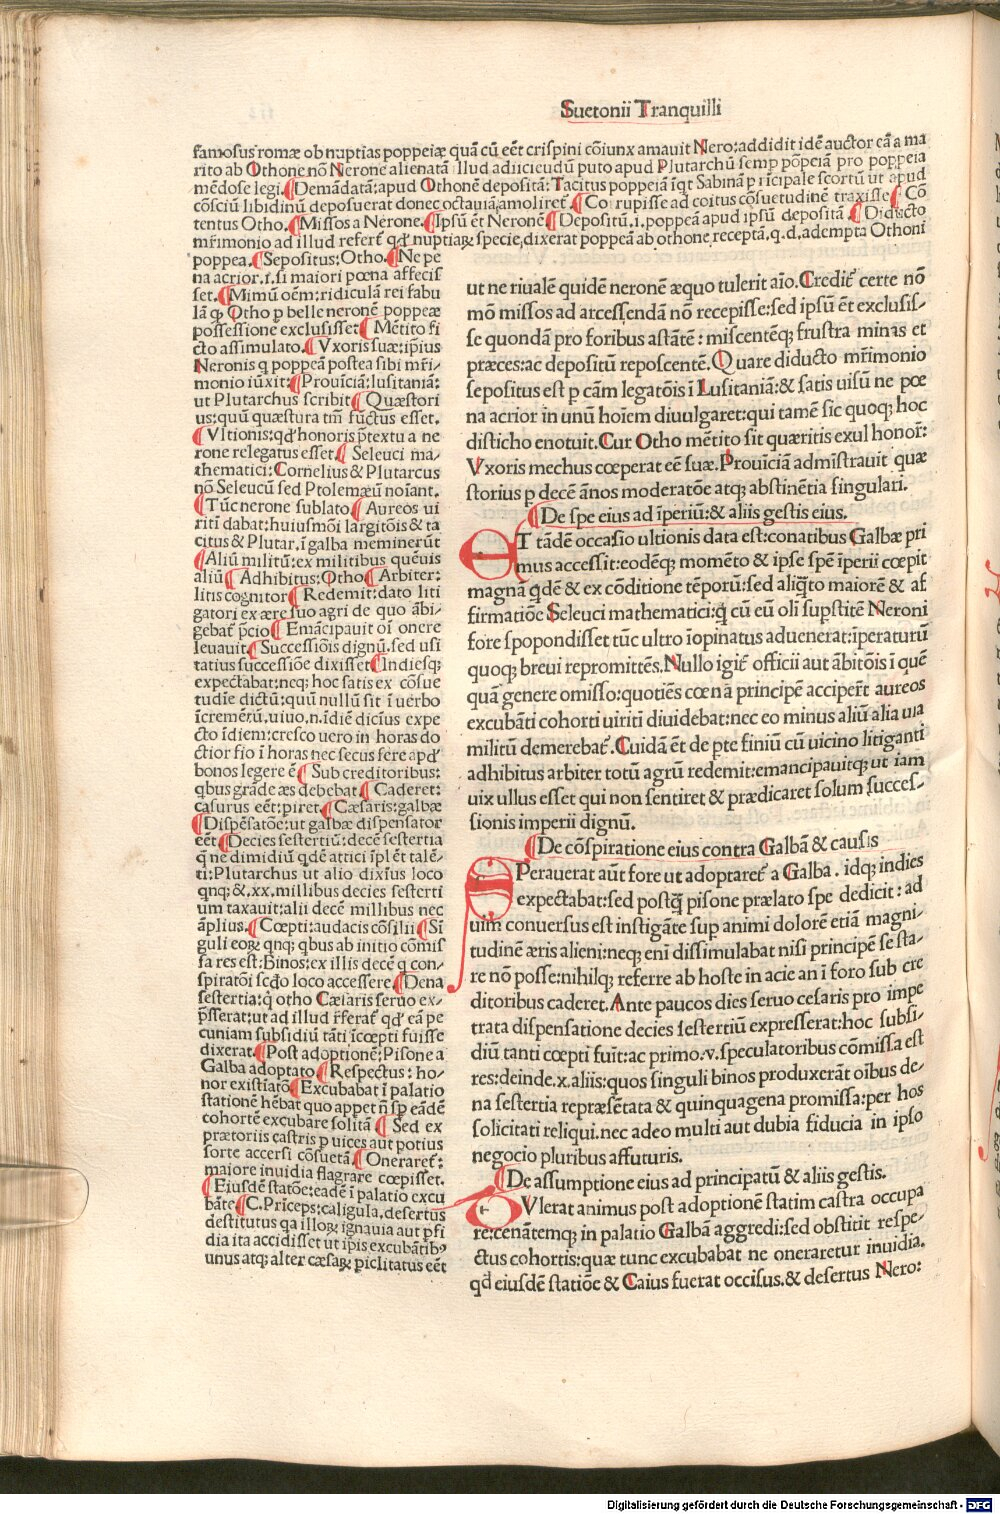 Suetonii Tranquilli
famosus romæ ob nuptias poppeiæ quã cũ eēt crispini cõiunx amauit Nero: addidit idẽ auctor eã a ma
rito ab Othone nõ Nerone alienatã illud adiiciẽdũ puto apud Plutarchũ semp põpeiã pro poppeia
mẽdose legi. ¶ Demãdatã: apud Othonẽ depositã: Tacitus poppeiã iqt Sabinã p̄ rĩcipale scortũ ut apud
cõsciũ libidinũ deposuerat donec octauiã amoliret᷑. ¶ Co rupisse ad coitus cõsuetudinẽ traxisse ¶ Cõ
tentus Otho. ¶ Missos a Nerone. ¶ Ipsũ ẽt Neronẽ ¶ Depositũ .i. poppeã apud ipsũ depositã. ¶ Diducto
mr̃imonio ad illud refert᷑ qđ nuptiaꝝ specie, dixerat poppeã ab othone receptã. q.d. adempta Othoni
poppea. ¶ Sepositus: Otho. ¶ Ne pœ
na acrior. s. si maiori pœna affecis
set. ¶ Mimũ oẽm: ridiculã rei fabu
lã qꝫ Otho p belle neronẽ poppeæ
possessione exclusisset: ¶ Mẽtito fi
cto assimulato. ¶ Vxoris suæ: ip̃ius
Neronis q poppeã postea sibi mr̃i-
monio iũxit: ¶ Prouĩciã: lusitaniã:
ut Plutarchus scribit ¶ Quæstori
us: quũ quæstura tm̃ fũctus esset.
¶ Vltionis: qđ honoris p̃textu a ne
rone relegatus esset ¶ Seleuci ma-
thematici: Cornelius & Plutarcus
nõ Seleucũ sed Ptolemæũ noĩant.
¶ Tũc nerone sublato ¶ Aureos ui
ritĩ dabat: huiusmõi largitõis & ta
citus & Plutar. ĩ galba meminerũt
¶ Aliũ militũ: ex militibus queuis
aliũ ¶ Adhibitus: Otho ¶ Arbiter:
litis cognitor ¶ Redemit: dato liti
gatori ex ære suo agri de quo ãbi-
gebat᷑ p̃cio ¶ Emãcipauit oĩ onere
leuauit ¶ Successiõis dignũ. sed usi
tatius successiõe dixisset ¶ Indiesqꝫ
expectabat: neqꝫ hoc satis ex cõsue
tudĩe dictũ: quũ nullũ sit ĩ uerbo
ĩcremẽtũ, uiuo, n. ĩdiẽ dicĩus expe
cto ĩdiem: cresco uero in horas do
ctior fio ĩ horas nec secus fere apđ
bonos legere ẽ ¶ Sub creditoribus:
qbus grãde æs debebat ¶ Caderet:
casurus eẽt: piret. ¶ Cæsaris: galbæ
¶ Dispẽsatõe: ut galbæ dispensator
eẽt ¶ Decies sestertiũ: decẽ sestertia
q̃ ne dimidiũ qdẽ attici ĩpl ẽt talẽ-
ti: Plutarchus ut alio dixĩus loco
qnqꝫ & .xx. millibus decies sesterti
um taxauit: alii decẽ millibus nec
aptius. ¶ Cœpti: audacis cõsilii ¶ Si
guli eoꝝ qnqꝫ qbus ab initio cõmis
sa res est: Binos: ex illis decẽ q con-
spiratõi scđo loco accessere ¶ Dena
sestertia: q̃ otho Cæsaris seruo ex-
p̃sserat: ut ad illud r̃ferat᷑ qđ eã pe
cuniam subsidiũ tãti ĩcœpti fuisse
dixerat ¶ Post adoptionẽ: Pisone a
Galba adoptato ¶ Respectus: ho-
nor existĩatõ ¶ Excubabat ĩ palatio
stationẽ hẽbat quo appet ñ sp eãdẽ
cohortẽ excubare solitã ¶ Sed ex
prætoriis castris p uices aut potius
sorte accersi cõsuetã. ¶ Oneraret᷑:
maiore inuidia flagrare cœpisset.
¶ Eiusdẽ statõe: eadẽ ĩ palatio excu
bãte ¶ C. Prĩceps: caligula, desertus
destitutus qa illoꝝ ignauia aut pfi
dia ita accidisset ut ip̃is excubãtibꝰ
unus atqꝫ alter cæsaꝝ piclitatus eẽt
ut ne riualẽ quidẽ neronẽ æquo tulerit aĩo. Credit᷑ certe nõ
mõ missos ad arcessendã nõ recepisse: sed ipsũ ẽt exclusis-
se quondã pro foribus astãtẽ: miscentẽqꝫ frustra minas et
præces: ac depositũ reposcentẽ. Quare diducto mr̃imonio
sepositus est p cãm legatõis ĩ Lusitaniã: & satis uisũ ne pœ
na acrior in unũ hoĩem diuulgaret: qui tamẽ sic quoqꝫ hoc
disticho enotuit. Cur Otho mẽtito sit quæritis exul honor̃:
Vxoris mechus cœperat eẽ suæ. Prouĩciã admĩstrauit quæ
storius p decẽ ãnos moderatõe atqꝫ abstinẽtia singulari.
¶ De spe eius ad ĩperiũ: & aliis gestis eius.
ET tãdẽ occasio ultionis data est: conatibus Galbæ pri
mus accessit: eodẽqꝫ momẽto & ipse spẽ ĩperii cœpit
magnã qđẽ & ex cõditione tẽporũ: sed aliq̃to maiorẽ & af
firmatiõe Seleuci mathematici: q̃ cũ eũ oli supstitẽ Neroni
fore spopondisset tũc ultro ĩopinatus aduenerat: ĩperaturũ
quoqꝫ breui repromittẽs. Nullo igit᷑ officii aut ãbitõis ĩ quẽ
quã genere omisso: quotiẽs cœna principẽ accipert᷑ aureos
excubãti cohorti uiritĩ diuidebat: nec eo minus aliũ alia uia
militũ demerebat᷑. Cuidã ẽt de pte finiũ cũ uicino litiganti
adhibitus arbiter totũ agrũ redemit: emancipauitqꝫ ut iam
uix ullus esset qui non sentiret & prædicaret solum succes-
sionis imperii dignũ.
¶ De cõspiratione eius contra Galbã & causis
SPerauerat aũt fore ut adoptaret᷑ a Galba. idqꝫ indies
expectabat: sed postq̃ pisone prælato spe dedicit: ad
uim conuersus est instigãte sup animi dolorẽ etiã magni-
tudinẽ æris alieni: neqꝫ enĩ dissimulabat nisi principẽ se sta-
re nõ posse: nihilqꝫ referre ab hoste in acie an ĩ foro sub cre
ditoribus caderet. Ante paucos dies seruo cesaris pro impe
trata dispensatione decies sestertiũ expresserat: hoc subsi-
diũ tanti cœpti fuĩt: ac primo .v. speculatoribus cõmissa est
res: deinde .x. aliis: quos singuli binos produxerãt oibus de-
na sestertia repræsẽtata & quinquagena promissa: per hos
solicitati reliqui. nec adeo multi aut dubia fiducia in ipso
negocio pluribus affuturis.
¶ De assumptione eius ad principatũ & aliis gestis.
TVlerat animus post adoptionẽ statim castra occupa
re: cenãtemqꝫ in palatio Galbã aggredi: sed obstitit respe-
ctus cohortis: quæ tunc excubabat ne oneraretur inuidia.
qđ eiusdẽ statiõe & Caius fuerat occisus. & desertus Nero:
Digitalisierung gefördert durch die Deutsche Forschungsgemeinschaft - DFG